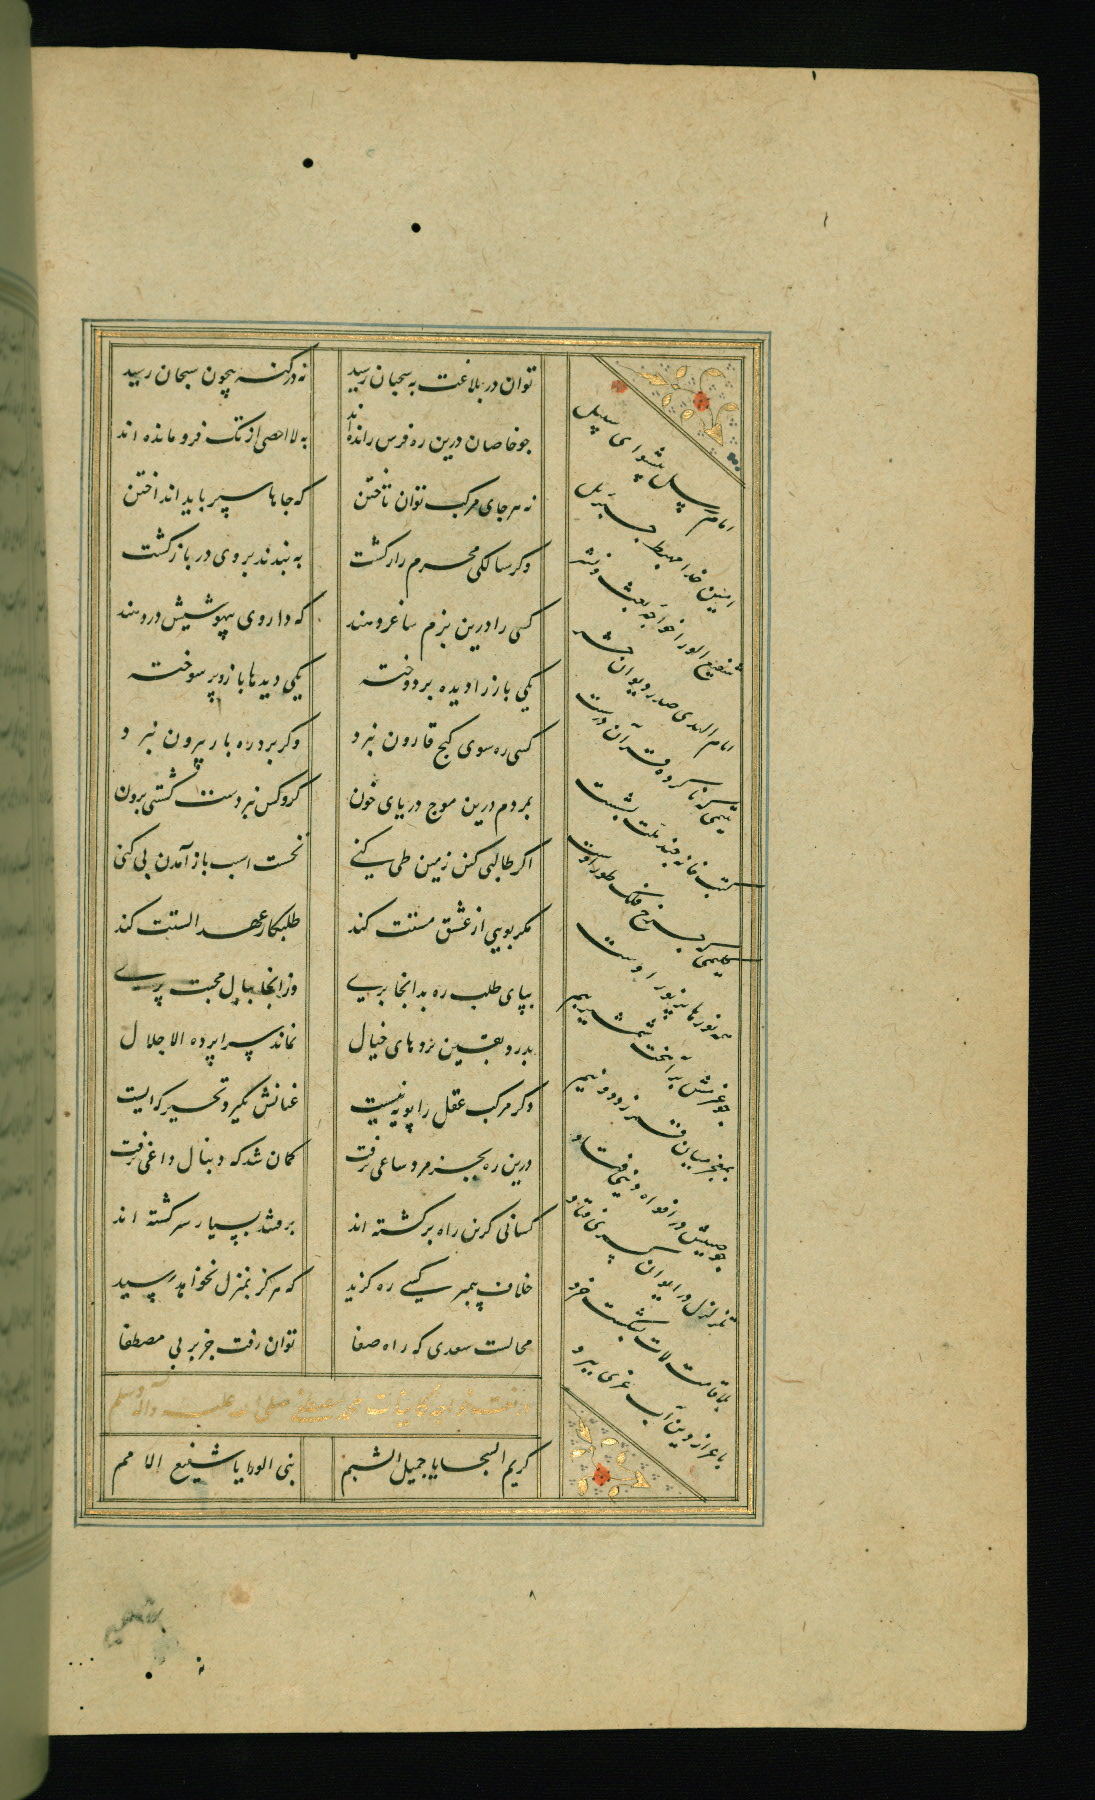 توان در بلاغت به سحبان رسید نه در کنه بیچون سبحان رسید
چو خاصان درین ره فرس رانده اند به لا احصی از تک فرو مانده اند
نه هر جای مرکب توان تاختن که جاها سپر باید انداختن
وکر سالکی محرم راز کشت به بندند بر وی در بازکشت
کسی را درین بزم ساغر دهند که داروی بیهوشیش در دهند
یکی باز را دیده بر دوخته یکی دیدها باز و پر سوخته
کسی ره سوی کنج قارون نبرد وکر برد ره باز بیرون نبرد
بمردم درین موج دریای خون کزو کس نبردست کشتی برون
اکر طالبی کین زمین طی کنی نخست اسب باز آمدن پی کنی
مکر بویی از عشق مستت کند طلبکار عهد الستت کند
بپای طلب ره بدانجا بری وزانجا ببال محبت پری
بدرد یقین پردهای خیال نماند سراپرده الا جلال
دکر مرکب عقل را پویه نیست عنانش بکیرد تحیر که ایست
درین ره بجز مرد ساعی نرفت کمان شد که دنبال داعی نرفت
کسانی کزین راه برکشته اند برفتند بسیار سرکشته اند
خلاف پیمبر کسی ره کزید که هرکز بمنزل نخواهد رسید
محالست سعدی که راه صفا توان رفت جز بر پی مصطفا
در نعت خواجه کاینات محمد مصطفی صلی الله علیه وآله وسلم
کریم السجایا جمیل الشیم نبی الورایا شفیع الامم
امام رسل پیشوای سبیل
امین خدا مهبط جبرئیل
شفیع الورا خواجه بعث و نشر
امام الهدی صدر دیوان حشر
یتیمی که ناکرده قرآن درست
کتب خانه چند ملت بشست
کلیمی که چرخ فلک طور اوست
همه نورها پرتو نور اوست
چو عزمش برآهخت شمشیر بیم
بمعجز میان قمر زد دو نیم
چو صیتش در افواه دنیی فتاد
تزلزل در ایوان کسری فتاد
بلا قامت لات بشکست خرد
باعزاز دین آب عزی ببرد
۸